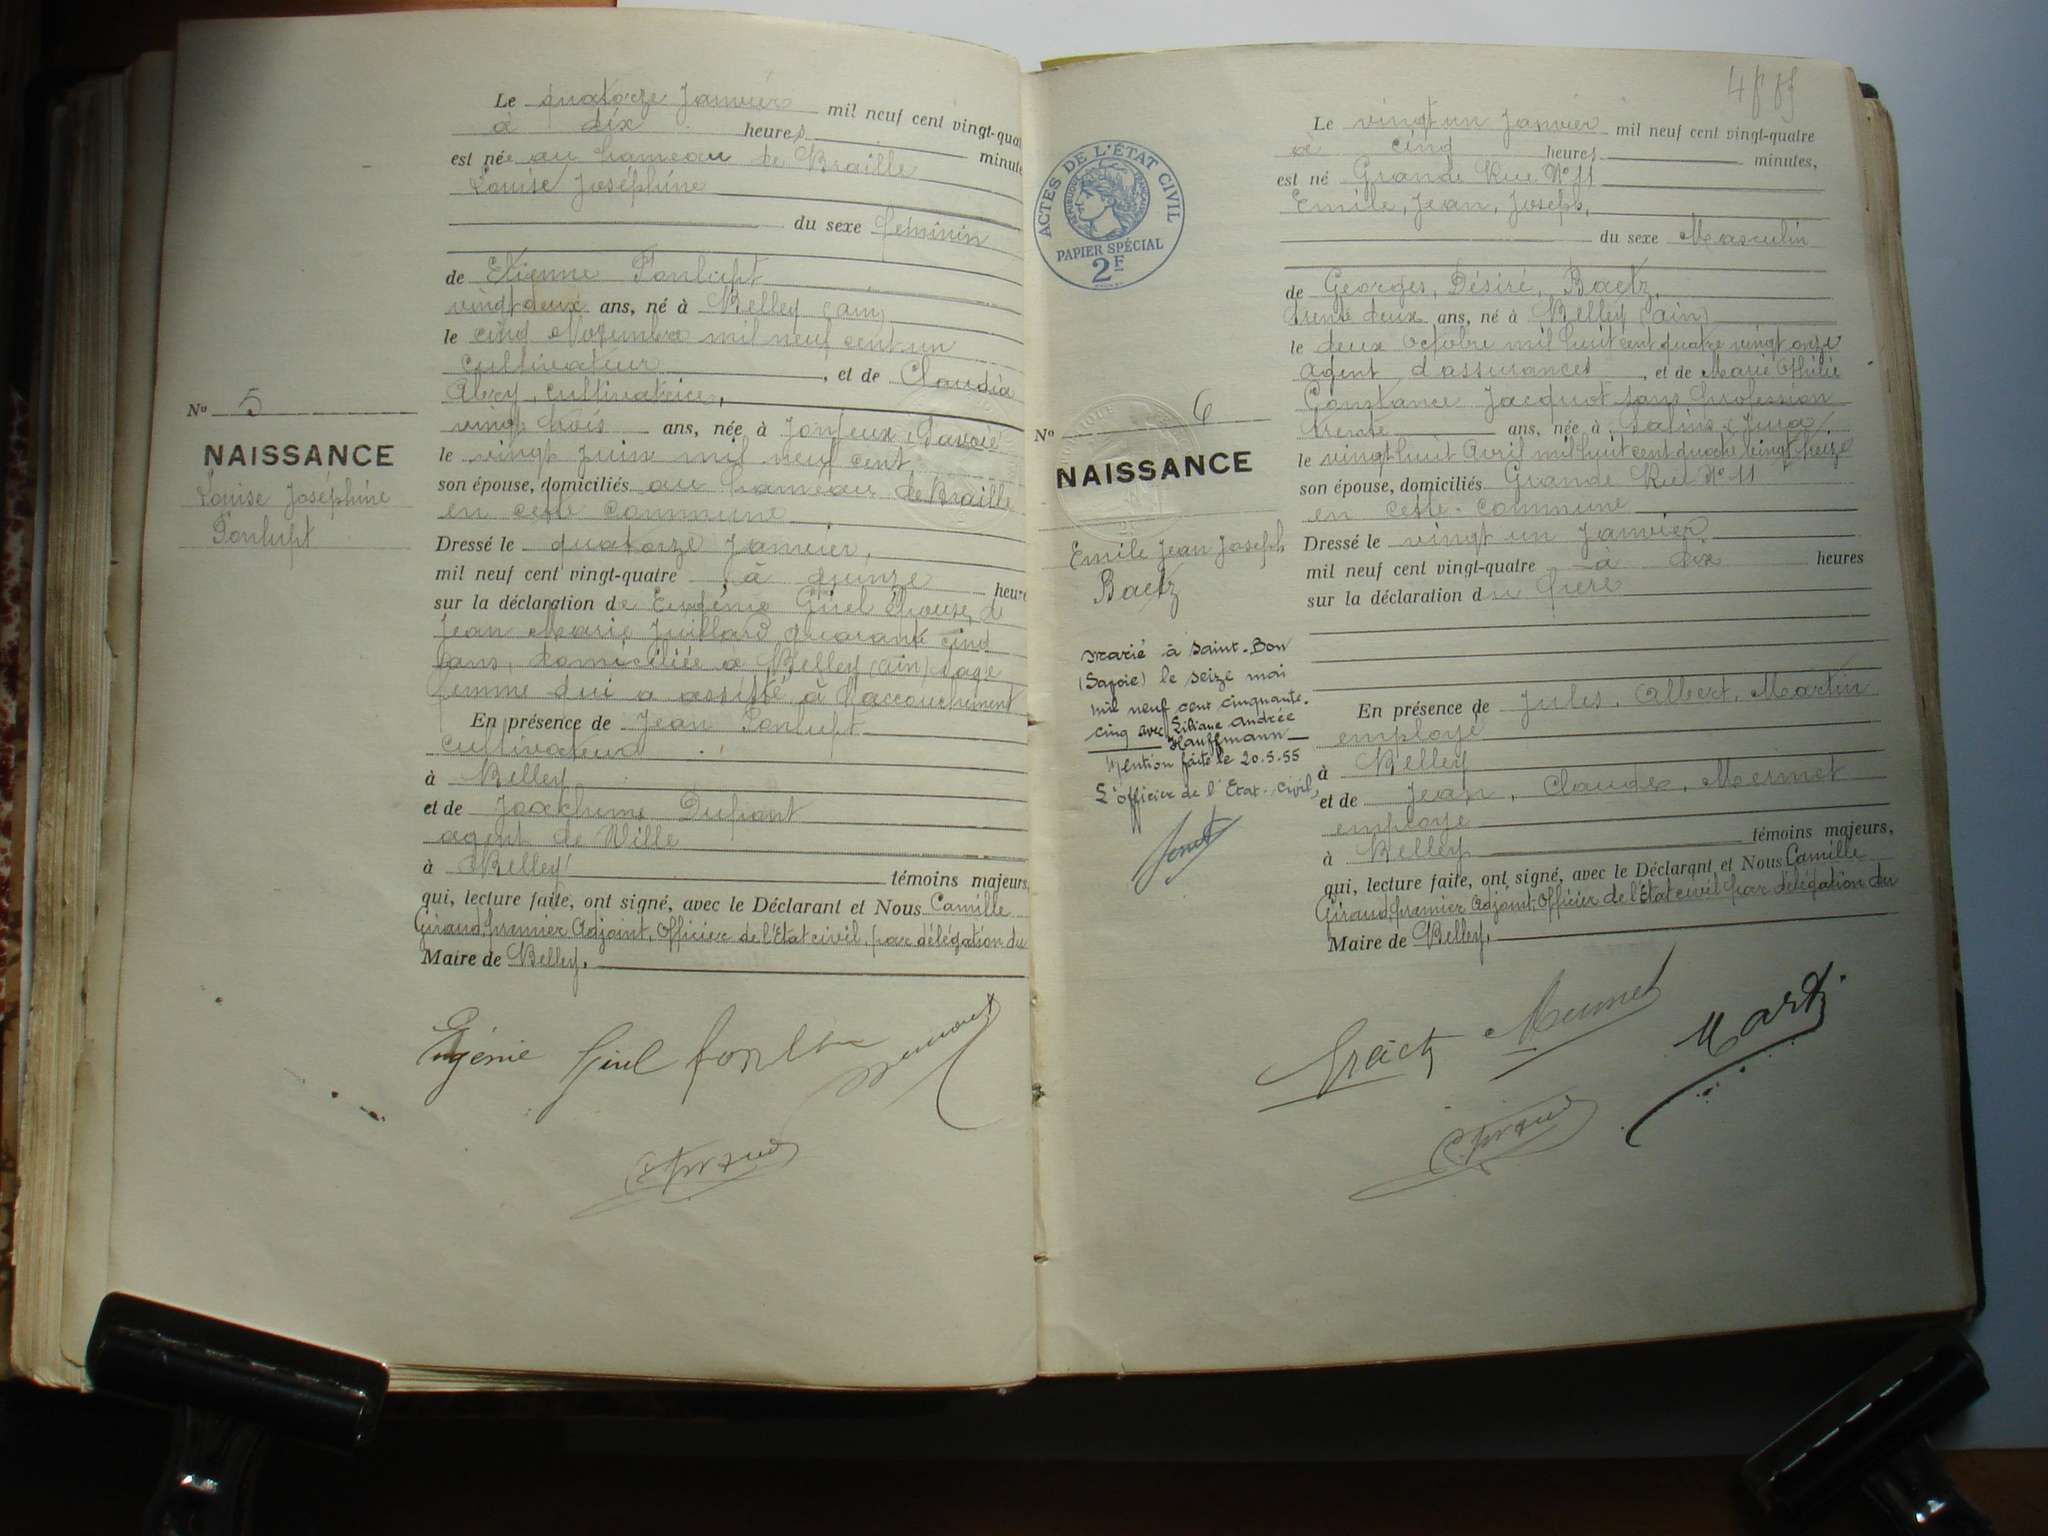 Le quatorze Janvier mil neuf cent vingt-quat
à dix heures minute
est née au hameau de Braille
Louise Joséphine
du sexe féminin
de Etienne Ponlupt
vingt deux ans, né à Belley (Ain)
le cinq Novembre mil neuf cent un
cultivateur, et de Claudia
cultivatrice,
vingt trois ans, née à Jongieux (Savoie
le vingt Juin mil neuf cent,
son épouse, domiciliés au hameau de Braille
en cette commune
Dressé le quatorze Janvier,
mil neuf cent vingt-quatre à quinze heure
sur la déclaration de Eugénie Girel épouse de
Jean Marie Juillard quarante cinq
ans, domiciliée à Belley (Ain) sage
femme qui a assisté à l'accouchement
En présence de Jean Ponlupt
cultivateur
à Belley
et de Joachime
agent de Ville
à Belley témoins majeurs,
qui, lecture faite, ont signé, avec le Déclarant et Nous Camille
Giraud, premier Adjoint, Officier de l'Etat civil, par délégation du
Maire de Belley,
No 5
NAISSANCE
Louise Joséphine
Ponlupt
Eugénie Girel
ACTES DE L'ÉTAT CIVIL
RÉPUBLIQUE FRANÇAISE
PAPIER SPÉCIAL
2F
Le vingt un Janvier mil neuf cent vingt-quatre
à cinq heures minutes,
est né Grande Rue No 11
Emile, Jean, Joseph,
du sexe Masculin
de Georges, Désiré, Baetz,
trente deux ans, né à Belley (Ain)
le deux Octobre mil huit cent quatre vingt onze
Agent d'assurances, et de Marie Ophélie
Constance Jacquot sans profession
trente ans, née à Salins (Jura)
le vingt huit Avril mil huit cent quatre vingt treize
son épouse, domiciliés Grande Rue No 11
en cette commune
Dressé le vingt un Janvier
mil neuf cent vingt-quatre à dix heures
sur la déclaration du père
En présence de Jules, Albert, Martin
employé
à Belley
et de Jean, Claudex, Mermet
employé
à Belley témoins majeurs,
qui, lecture faite, ont signé, avec le Déclarant et Nous Camille
Giraud, premier Adjoint, Officier de l'Etat civil par délégation du
Maire de Belley,
No 6
NAISSANCE
Emile Jean Joseph
Baetz
Marié à Saint-Bon
(Savoie) le seize mai
mil neuf cent cinquante-
cinq avec Liliane Andrée
Hauffmann
Mention faite le 20.5.55
L'officier de l'Etat-Civil,